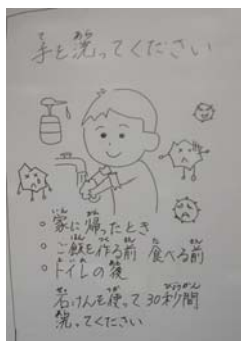 手を洗ってください
・家に帰ったとき
・ご飯を作る前 食べる前
・トイレの後
石けんを使って30秒間
洗ってください